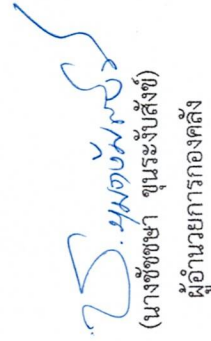 (นางชัชชษา ขุนระงับสังข์)
ผู้อำนวยการกองคลัง